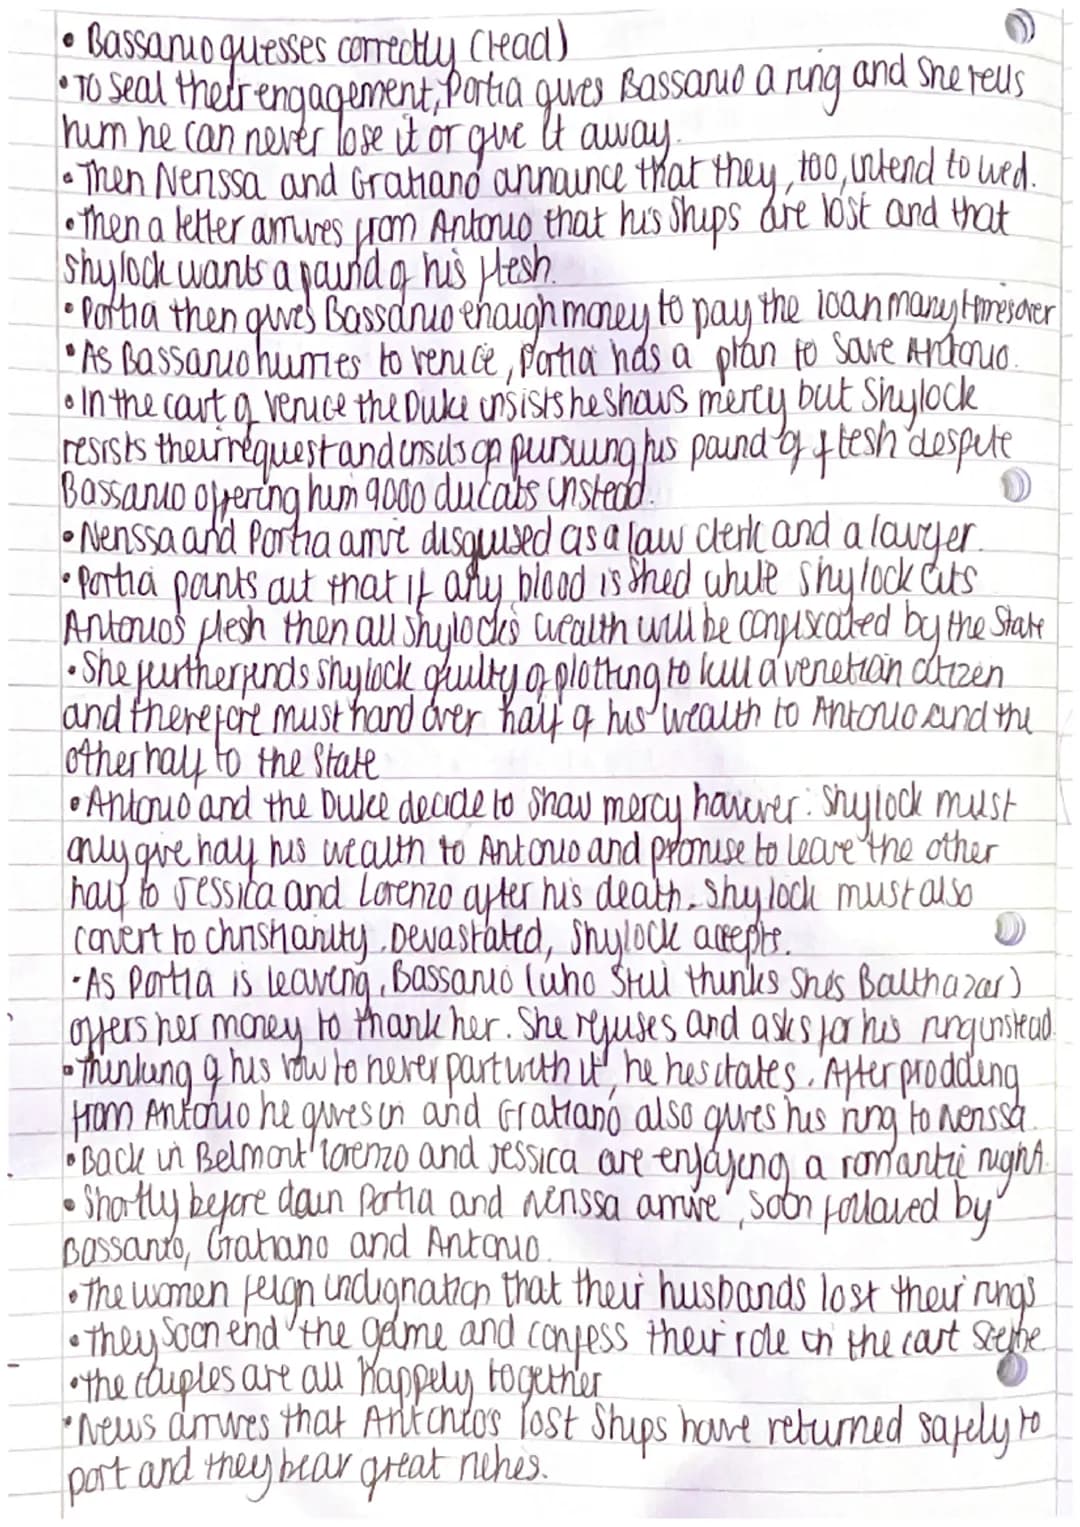 • Bassanio guesses correctly (lead)
• To seal their engagement, Portia gives Bassanio a ring and she tells
him he can never lose it or give it away.
• Then Nerissa and Gratiano announce that they, too, intend to wed.
• Then a letter arrives from Antonio that his ships are lost and that
Shylock wants a pound of his flesh.
• Portia then gives Bassanio enough money to pay the loan many times over
• As Bassanio hurries to Venice, Portia has a plan to save Antonio.
• In the court of Venice the Duke insists he shows mercy but Shylock
resists their request and insists on pursuing his pound of flesh despite
Bassanio offering him 9000 ducats instead.
• Nerissa and Portia arrive disguised as a law clerk and a lawyer.
• Portia points out that if any blood is shed while Shylock cuts
Antonios flesh then all Shylock's wealth will be confiscated by the State
• She further finds Shylock guilty of plotting to kill a venetian citizen
and therefore must hand over half of his wealth to Antonio and the
other half to the State
• Antonio and the Duke decide to show mercy however: Shylock must
only give half his wealth to Antonio and promise to leave the other
half to Jessica and Lorenzo after his death. Shylock must also
convert to christianity. Devastated, Shylock accepts.
• As Portia is leaving, Bassanio (who still thinks she's Balthazar)
offers her money to thank her. She refuses and asks for his ring instead.
• Thinking of his vow to never part with it, he hesitates. After prodding
from Antonio he gives in and Gratiano also gives his ring to Nerissa.
• Back in Belmont Lorenzo and Jessica are enjoying a romantic night.
• Shortly before dawn Portia and Nerissa arrive, soon followed by
Bassanio, Gratiano and Antonio.
• The women feign indignation that their husbands lost their rings
• They soon end the game and confess their role in the court scene
• The couples are all happely together
• News arrives that Antonio's lost ships have returned safely to
port and they bear great riches.